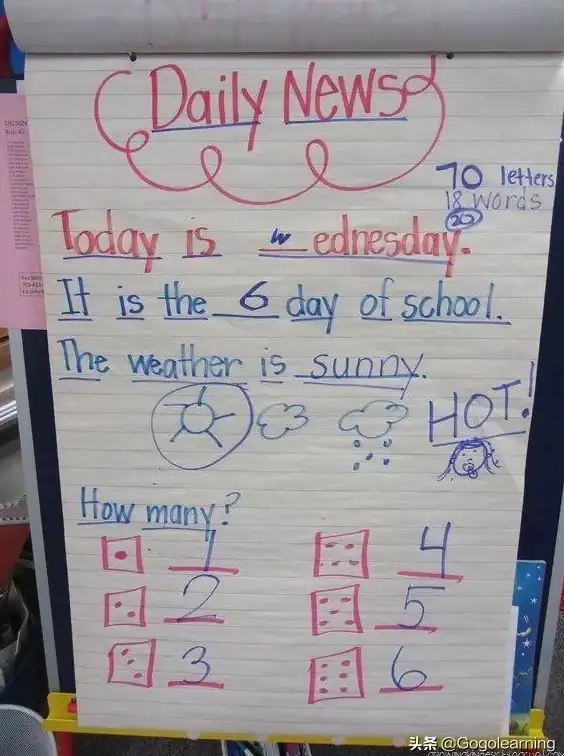 Daily News
70 letters
18 words
20
Today is wednesday.
It is the 6 day of school.
The weather is sunny.
HOT!
How many?
1 4
2 5
3 6
头条 @Gogolearning